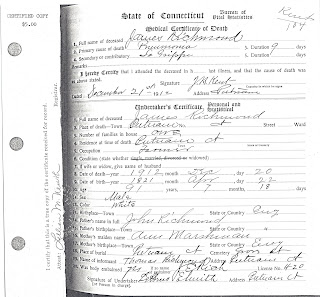 CERTIFIED COPY
$5.00
State of Connecticut
Bureau of Vital Statistics
Medical Certificate of Death
1. Full name of deceased James Richmond
2. Primary cause of death Pneumonia Duration 9 days
3. Secondary or contributory La Grippe Duration
I hereby Certify that I attended the deceased in last illness, and that the cause of death was as above stated.
December 21 1912 Address Putnam
Undertaker's Certificate Personal and Statistical
1. Full name of deceased James Richmond
2. Place of death—Town Putnam Ct Street Ward
3. Number of families in house one
4. Residence at time of death Putnam Ct
5. Occupation Farmer
6. Condition (state whether single, married, divorced or widowed)
7. If wife or widow, give name of husband
8. Date of death—year 1912 Dec 20
9. Date of birth—year 1821
10. Age 91 7 18
11. Sex Male
12. Color White
13. Birthplace—Town State or Country Eng
14. Father's full name John Richmond
15. Father's birthplace—Town State or Country Eng
16. Mother's maiden name Ann
17. Mother's birthplace—Town State or Country Eng
18. Place of burial Putnam Ct Cemetery Grove St
19. Name of informant Thomas Richmond Address Putnam Ct
20. Was body embalmed yes License No. 420
Smith Address Putnam Ct
I certify that this is a true copy of the certificate received for record.
Attest:
Registrar.